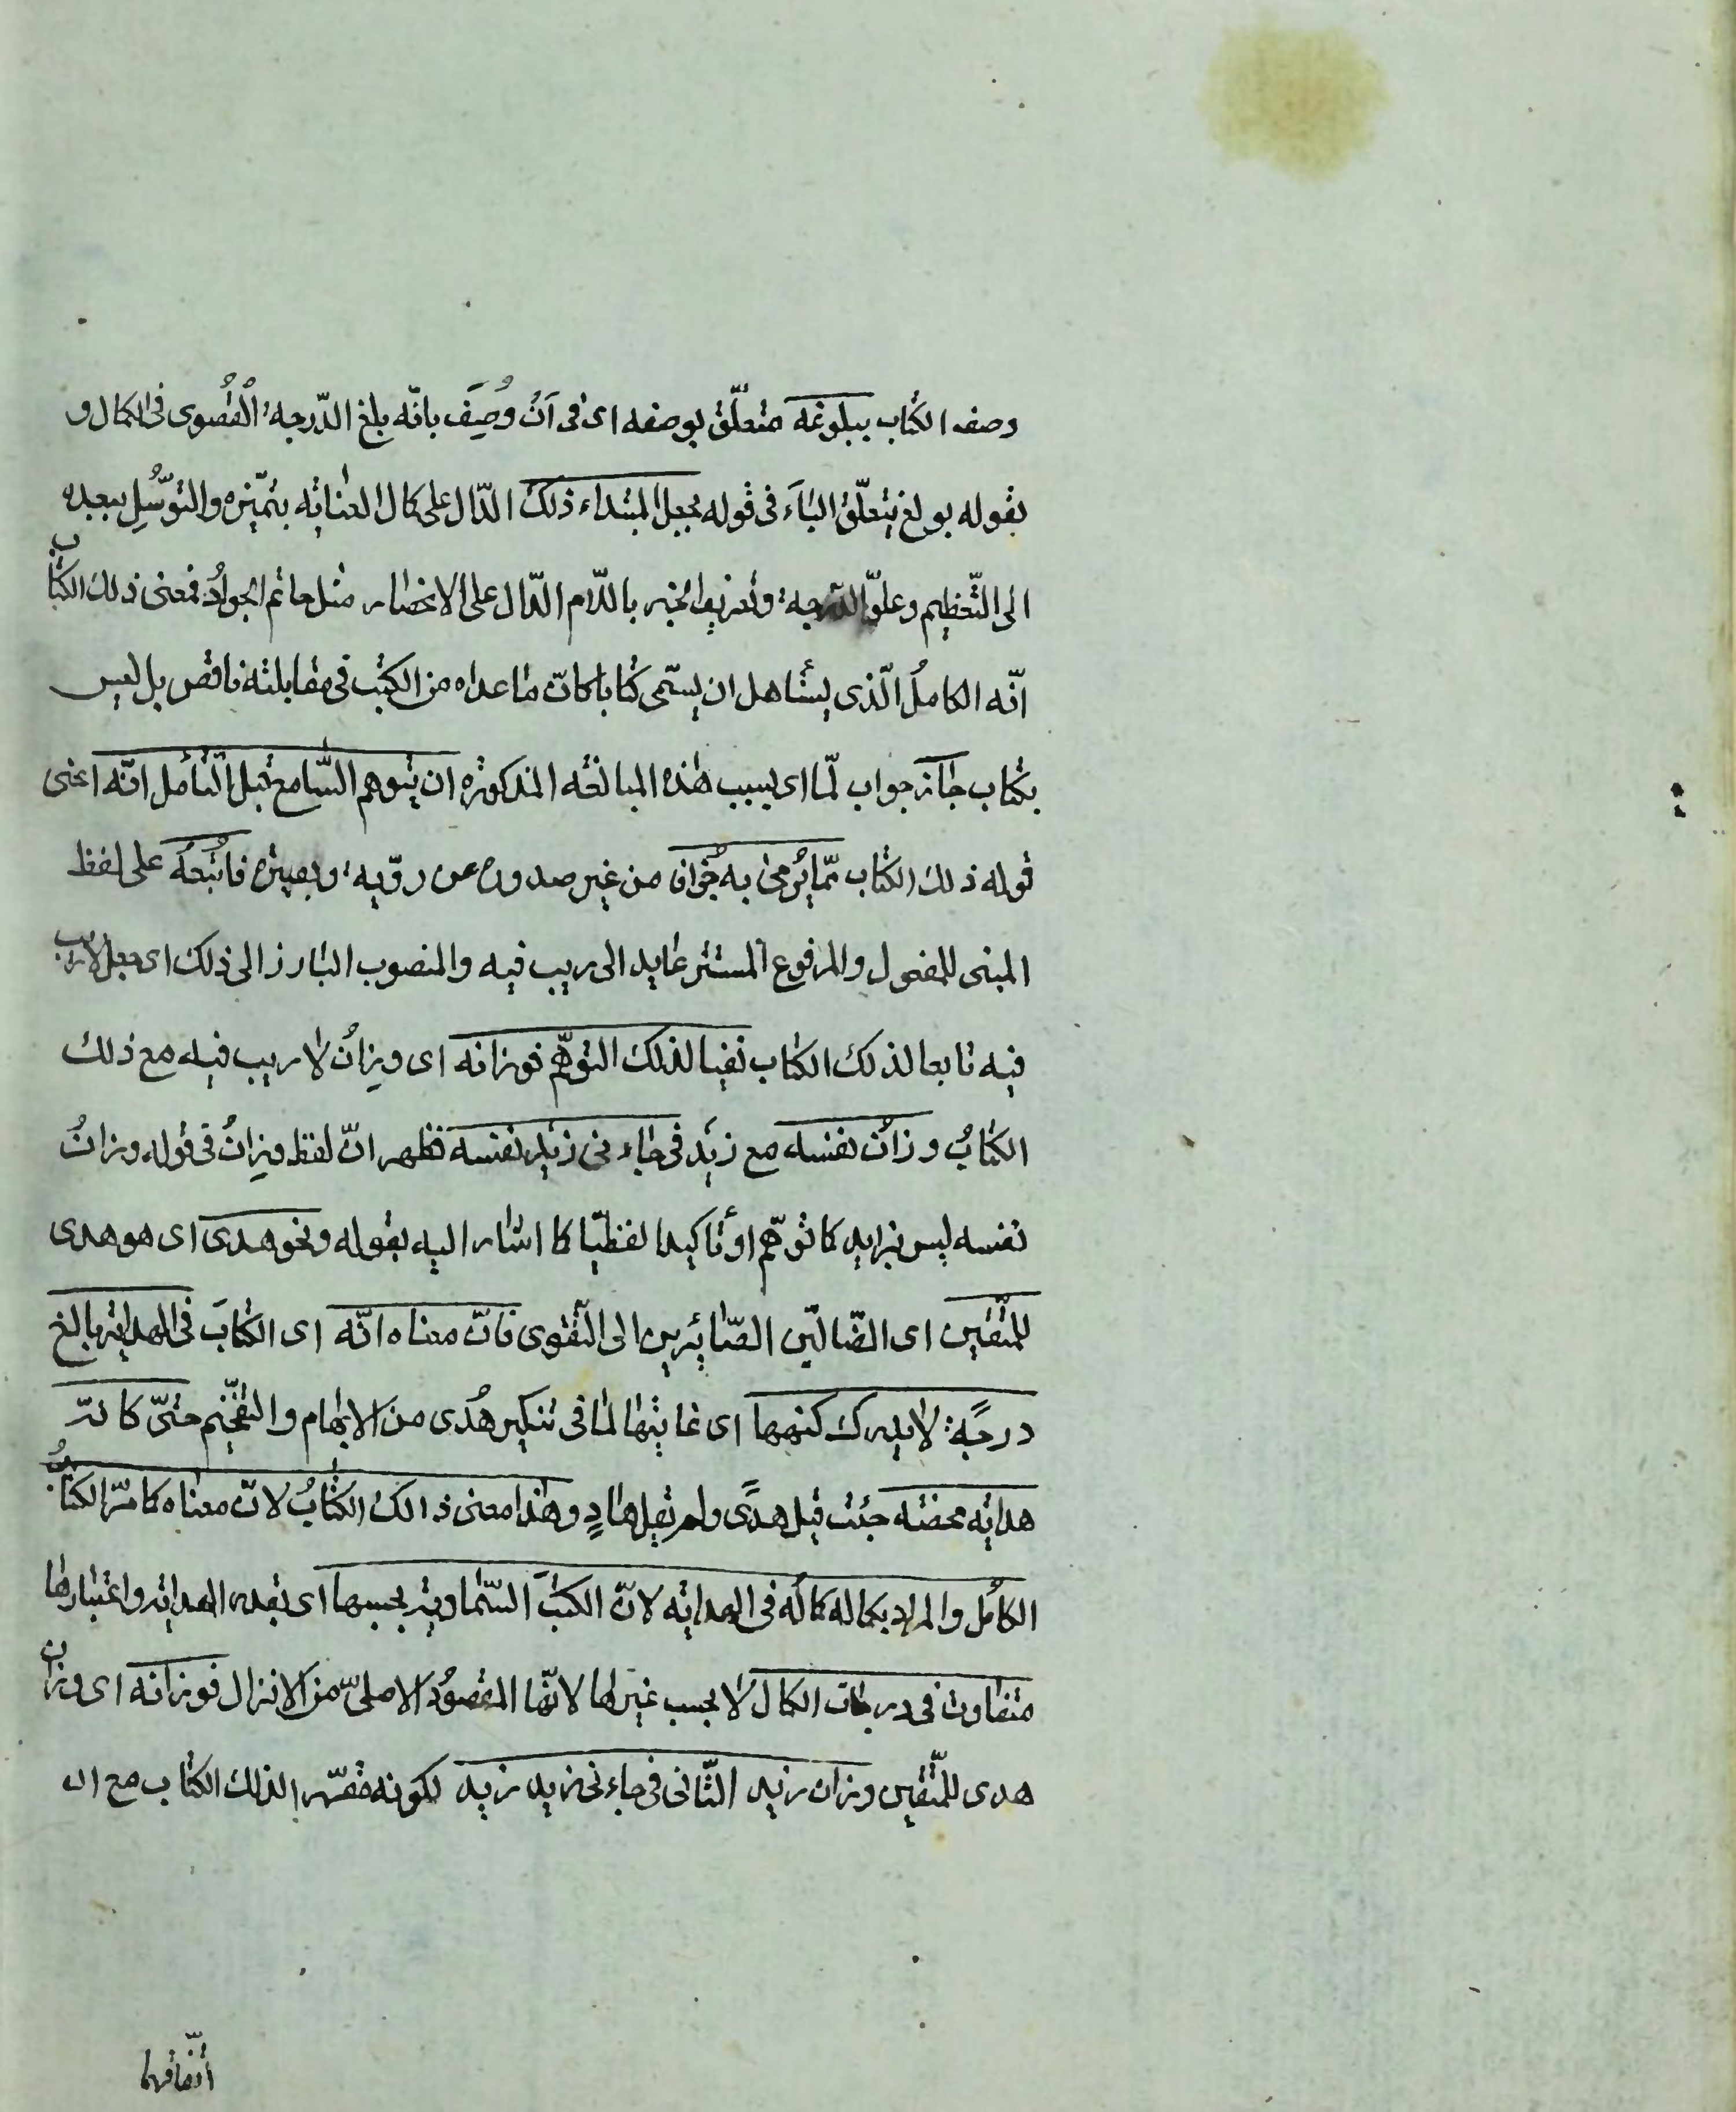 وصف الكتاب ببلوغه متعلّق بوصفه اى فى اَنْ وُصِفَ بانّه بلغ الدّرجة القُصْوى فى الكمال و
بقوله بولغ يتعلّق الباَء فى قوله بجعل المبتداء ذلك الدّال على كمال العناية بتميّزه والتوسُّلِ ببعده
الى التّعظيم وعلوّ الدّرجة وتعريف الخبر باللّام الدّال على الانحصار مثل حاتم الجوادُ فمعنى ذلك الكتاب
انّه الكاملُ الّذى يستأهل ان يسمّى كتابا كانّ ما عداه من الكتب فى مقابلته ناقص بل ليس
بكتاب جاَز جواب لمّا اى بسبب هذه المبالغة المذكورة ان يتوهم السّامع قبل التأمل انّه اعنى
قوله ذلك الكتاب ممّا يُرمىٰ به جُزافا من غير صدور عن رويّة وبصيرة فاُتْبعَهُ على لفظ
المبنى للمفعول والمرفوع المستتر عايد الى لاريب فيه والمنصوب البارز الى ذلك اى جعل لاريب
فيه تابعا لذلك الكتاب نفيا لذلك التوهّم فوزانه اى وِزانُ لا ريب فيه مع ذلك
الكتابُ وزانُ نفسه مع زيَد فى جاء نى زيد نفسه فظهر انّ لفظ وِزانُ فى قوله وزانُ
نفسه ليس بزايد كما توهّم او تأكيدا لفظيّا كما اشار اليه بقوله ونحو هدى اى هو هدى
للمتّقين اى الضّالّين الصّائرين الى التّقوى فانّ معناه انّه اى الكتابَ فى الهداية بالغ
درجَةً لا يدرك كنهها اى غايتها لما فى تنكير هُدى من الابهام والتفخيم حتىّ كانّه
هداية محضة حيث قيل هدًى ولم يقل هادٍ وهذا معنى ذالك الكتابُ لانّ معناه كما مرّ الكتابُ
الكامُل والمراد بكماله كمالُه فى الهداية لانّ الكتبَ السّماوية بحسبها اى بقدر الهداية واعتبارها
متفاوت فى درجات الكمال لا بحسب غيرها لانّها المقصوُد الاصلىّ من الانزال فوزانه اى وزان
هدى للمتّقين وزان زيد الثّانى فى جاءنى زيد زيد لكونه مقرّرا لذلك الكتاب مع ان
اتّفاقهما